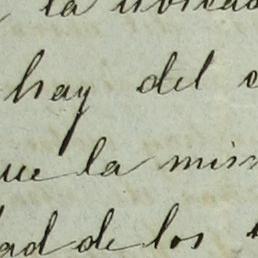 la
hay del
que la mis
dad de los